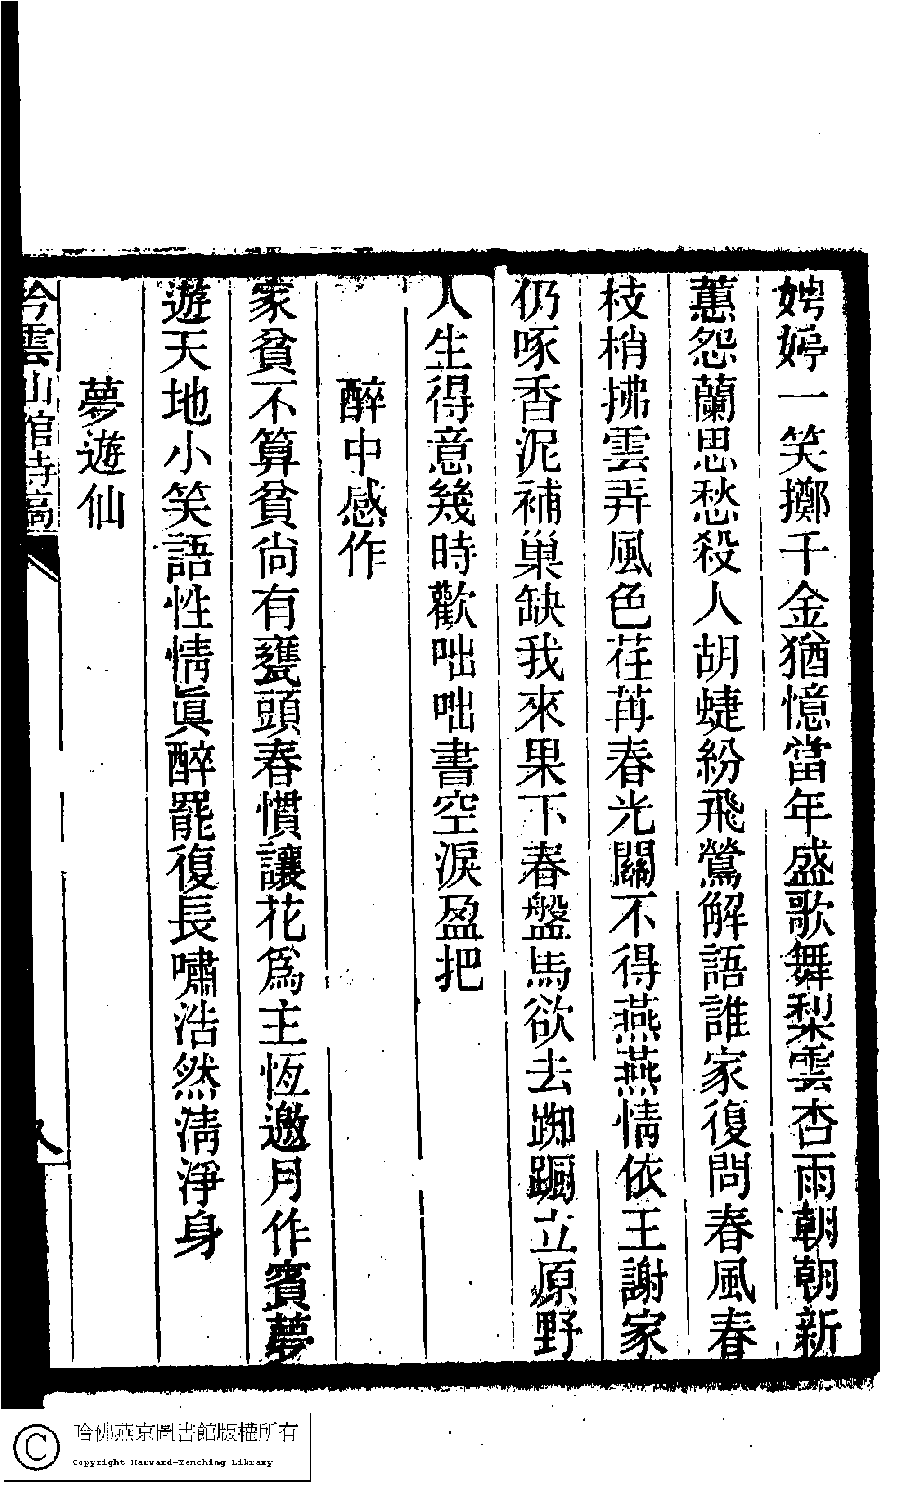 娉婷一笑擲千金猶憶當年盛歌舞梨雲杏雨朝朝新
蕙怨蘭思愁殺人胡蜨紛飛鶯解語誰家復問春風春
枝梢拂雲弄風色荏苒春光關不得燕燕情依王謝家
仍啄香泥補巢缺我來果下春盤馬欲去踟躕立原野
人生得意幾時歡咄咄書空淚盈把
醉中感作
家貧不算貧尙有甕頭春慣讓花爲主恆邀月作賓夢
遊天地小笑語性情眞醉罷復長嘯浩然淸淨身
夢遊仙
吟雲山館詩稿
哈佛燕京圖書館版權所有
Copyright Harvard-Yenching Library